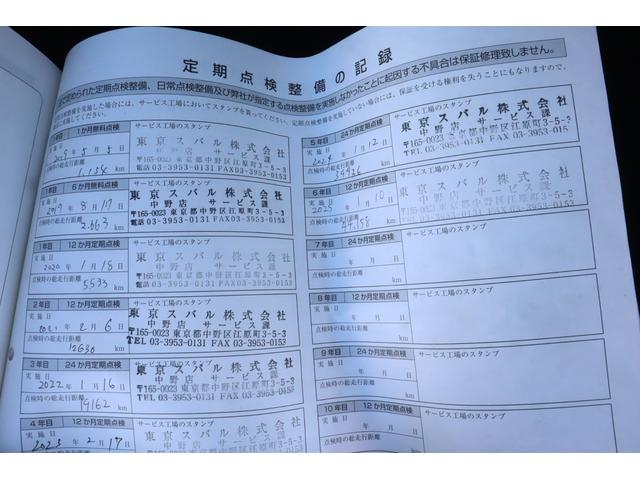 定期点検整備の記録
定められた定期点検整備、日常点検整備及び弊社が指定する点検整備を実施しなかったことに起因する不具合は保証修理致しません。
サービス工場においてスタンプを貰ってください。定期点検整備を実施していない場合には、保証を受ける権利を失うこともありますので、
1か月無料点検 サービス工場のスタンプ
実施日 2019年5月5日
1,134 km
東京スバル株式会社
中野店 サービス課
〒165-0023 東京都中野区江原町3-5-3
電話 03-3953-0131 FAX03-3953-0153
6か月無料点検 サービス工場のスタンプ
実施日 2019年8月17日
点検時の総走行距離
2,663 km
東京スバル株式会社
中野店 サービス課
〒165-0023 東京都中野区江原町3-5-3
電話 03-3953-0131 FAX03-3953-0153
1年目 12か月定期点検 サービス工場のスタンプ
実施日 2020年1月18日
点検時の総走行距離
5533 km
東京スバル株式会社
中野店 サービス課
〒165-0023 東京都中野区江原町3-5-3
電話 03-3953-0131 FAX03-3953-0153
2年目 12か月定期点検 サービス工場のスタンプ
実施日 2021年2月6日
点検時の総走行距離
12630 km
東京スバル株式会社
中野店 サービス課
〒165-0023 東京都中野区江原町3-5-3
TEL 03-3953-0131 FAX 03-3953-0153
3年目 24か月定期点検 サービス工場のスタンプ
実施日 2022年1月16日
点検時の総走行距離
19162 km
東京スバル株式会社
中野店 サービス課
〒165-0023 東京都中野区江原町3-5-3
電話 03-3953-0131 FAX 03-3953-0153
4年目 12か月定期点検 サービス工場のスタンプ
実施日 2023年2月17日
点検時の総走行距離
東京スバル株式会社
中野店 サービス課
〒165-0023 東京都中野区江原町3-5-3
5年目 24か月定期点検 サービス工場のスタンプ
実施日 2024年1月12日
点検時の総走行距離
km
東京スバル株式会社
中野店 サービス課
〒165-0023 東京都中野区江原町3-5-3
電話 03-3953-0131 FAX 03-3953-0153
6年目 12か月定期点検 サービス工場のスタンプ
実施日 2025年1月10日
点検時の総走行距離
44,158 km
東京スバル株式会社
中野店 サービス課
〒165-0023 東京都中野区江原町3-5-3
電話 03-3953-0131 FAX 03-3953-0153
7年目 24か月定期点検 サービス工場のスタンプ
実施日 年 月 日
点検時の総走行距離
km
8年目 12か月定期点検 サービス工場のスタンプ
実施日 年 月 日
点検時の総走行距離
km
9年目 24か月定期点検 サービス工場のスタンプ
実施日 年 月 日
点検時の総走行距離
km
10年目 12か月定期点検 サービス工場のスタンプ
実施日 年 月 日
点検時の総走行距離
km